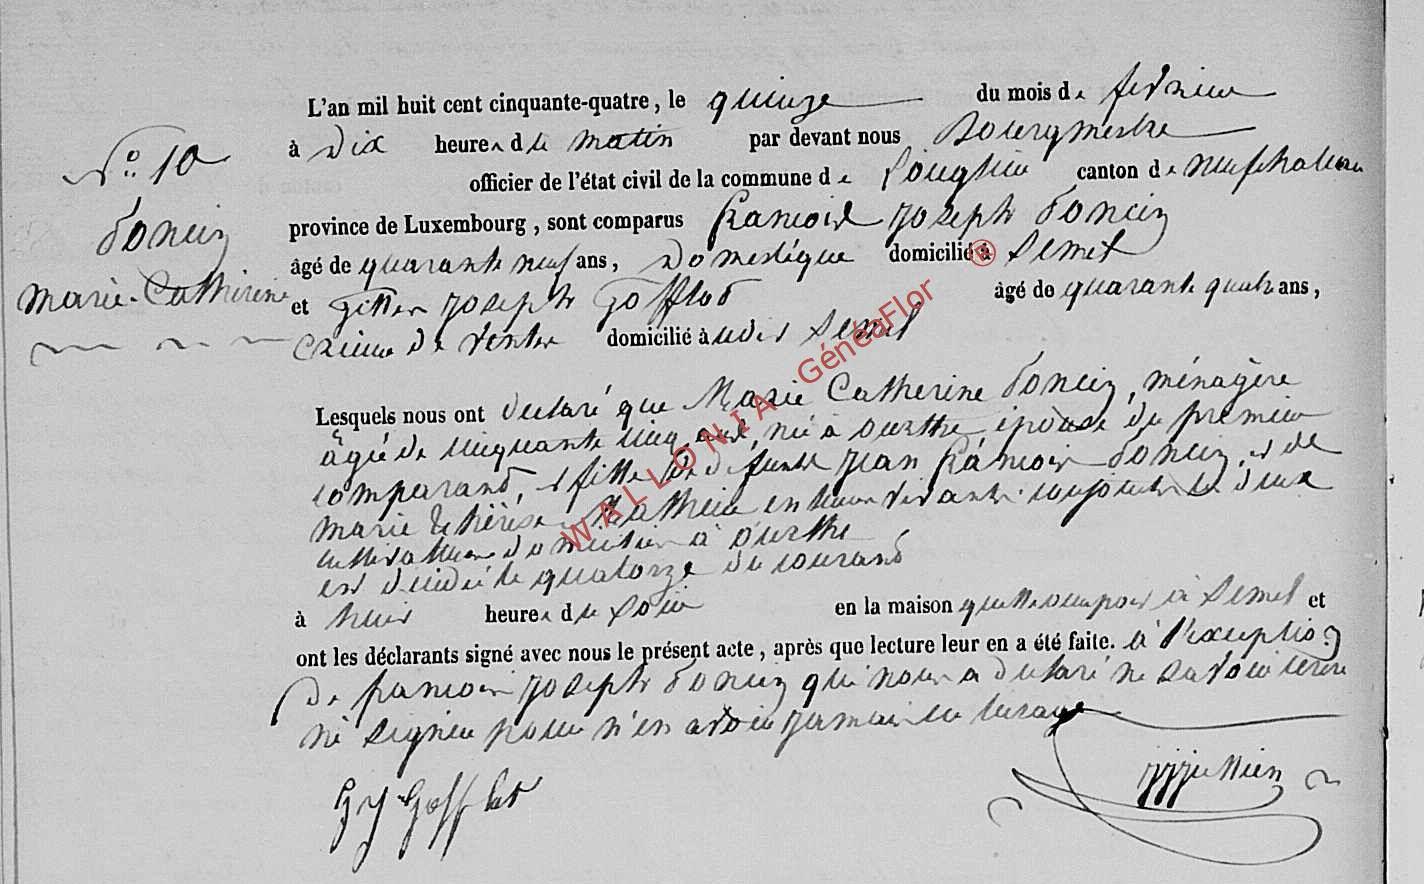 L'an mil huit cent cinquante-quatre, le quinze du mois de fevrier
à Dix heures du matin par devant nous Bourgmestre
N° 10
officier de l'état civil de la commune de Longlier canton de neufchateau
Poncin
province de Luxembourg, sont comparus francois Joseph Poncin
âgé de quarante neuf ans, Domestique domicilié à Semel
Marie-Catherine
et Joseph Gofflot âgé de quarante quatre ans,
de ventre domicilié à udit Semel
Lesquels nous ont declaré que Marie Catherine Poncin, ménagère
âgée de cinquante cinq ans, née à Ourthe épouse du premier
comparant, et fille de defunts Jean francois Poncin, et de
marie thérèse Mathieu en leur vivant conjoints tous deux
cultivateurs domiciliés à Ourthe
est décédée le quatorze du courant
à huit heures du Soir en la maison quelle occupoit à Semel et
ont les déclarants signé avec nous le présent acte, après que lecture leur en a été faite. à l'exception
De francois Joseph Poncin qui nous a declaré ne savoir écrire
ni signer pour n'en avoir jamais eu lusage
G J Gofflot
WALLONIA GénéaFlor ®